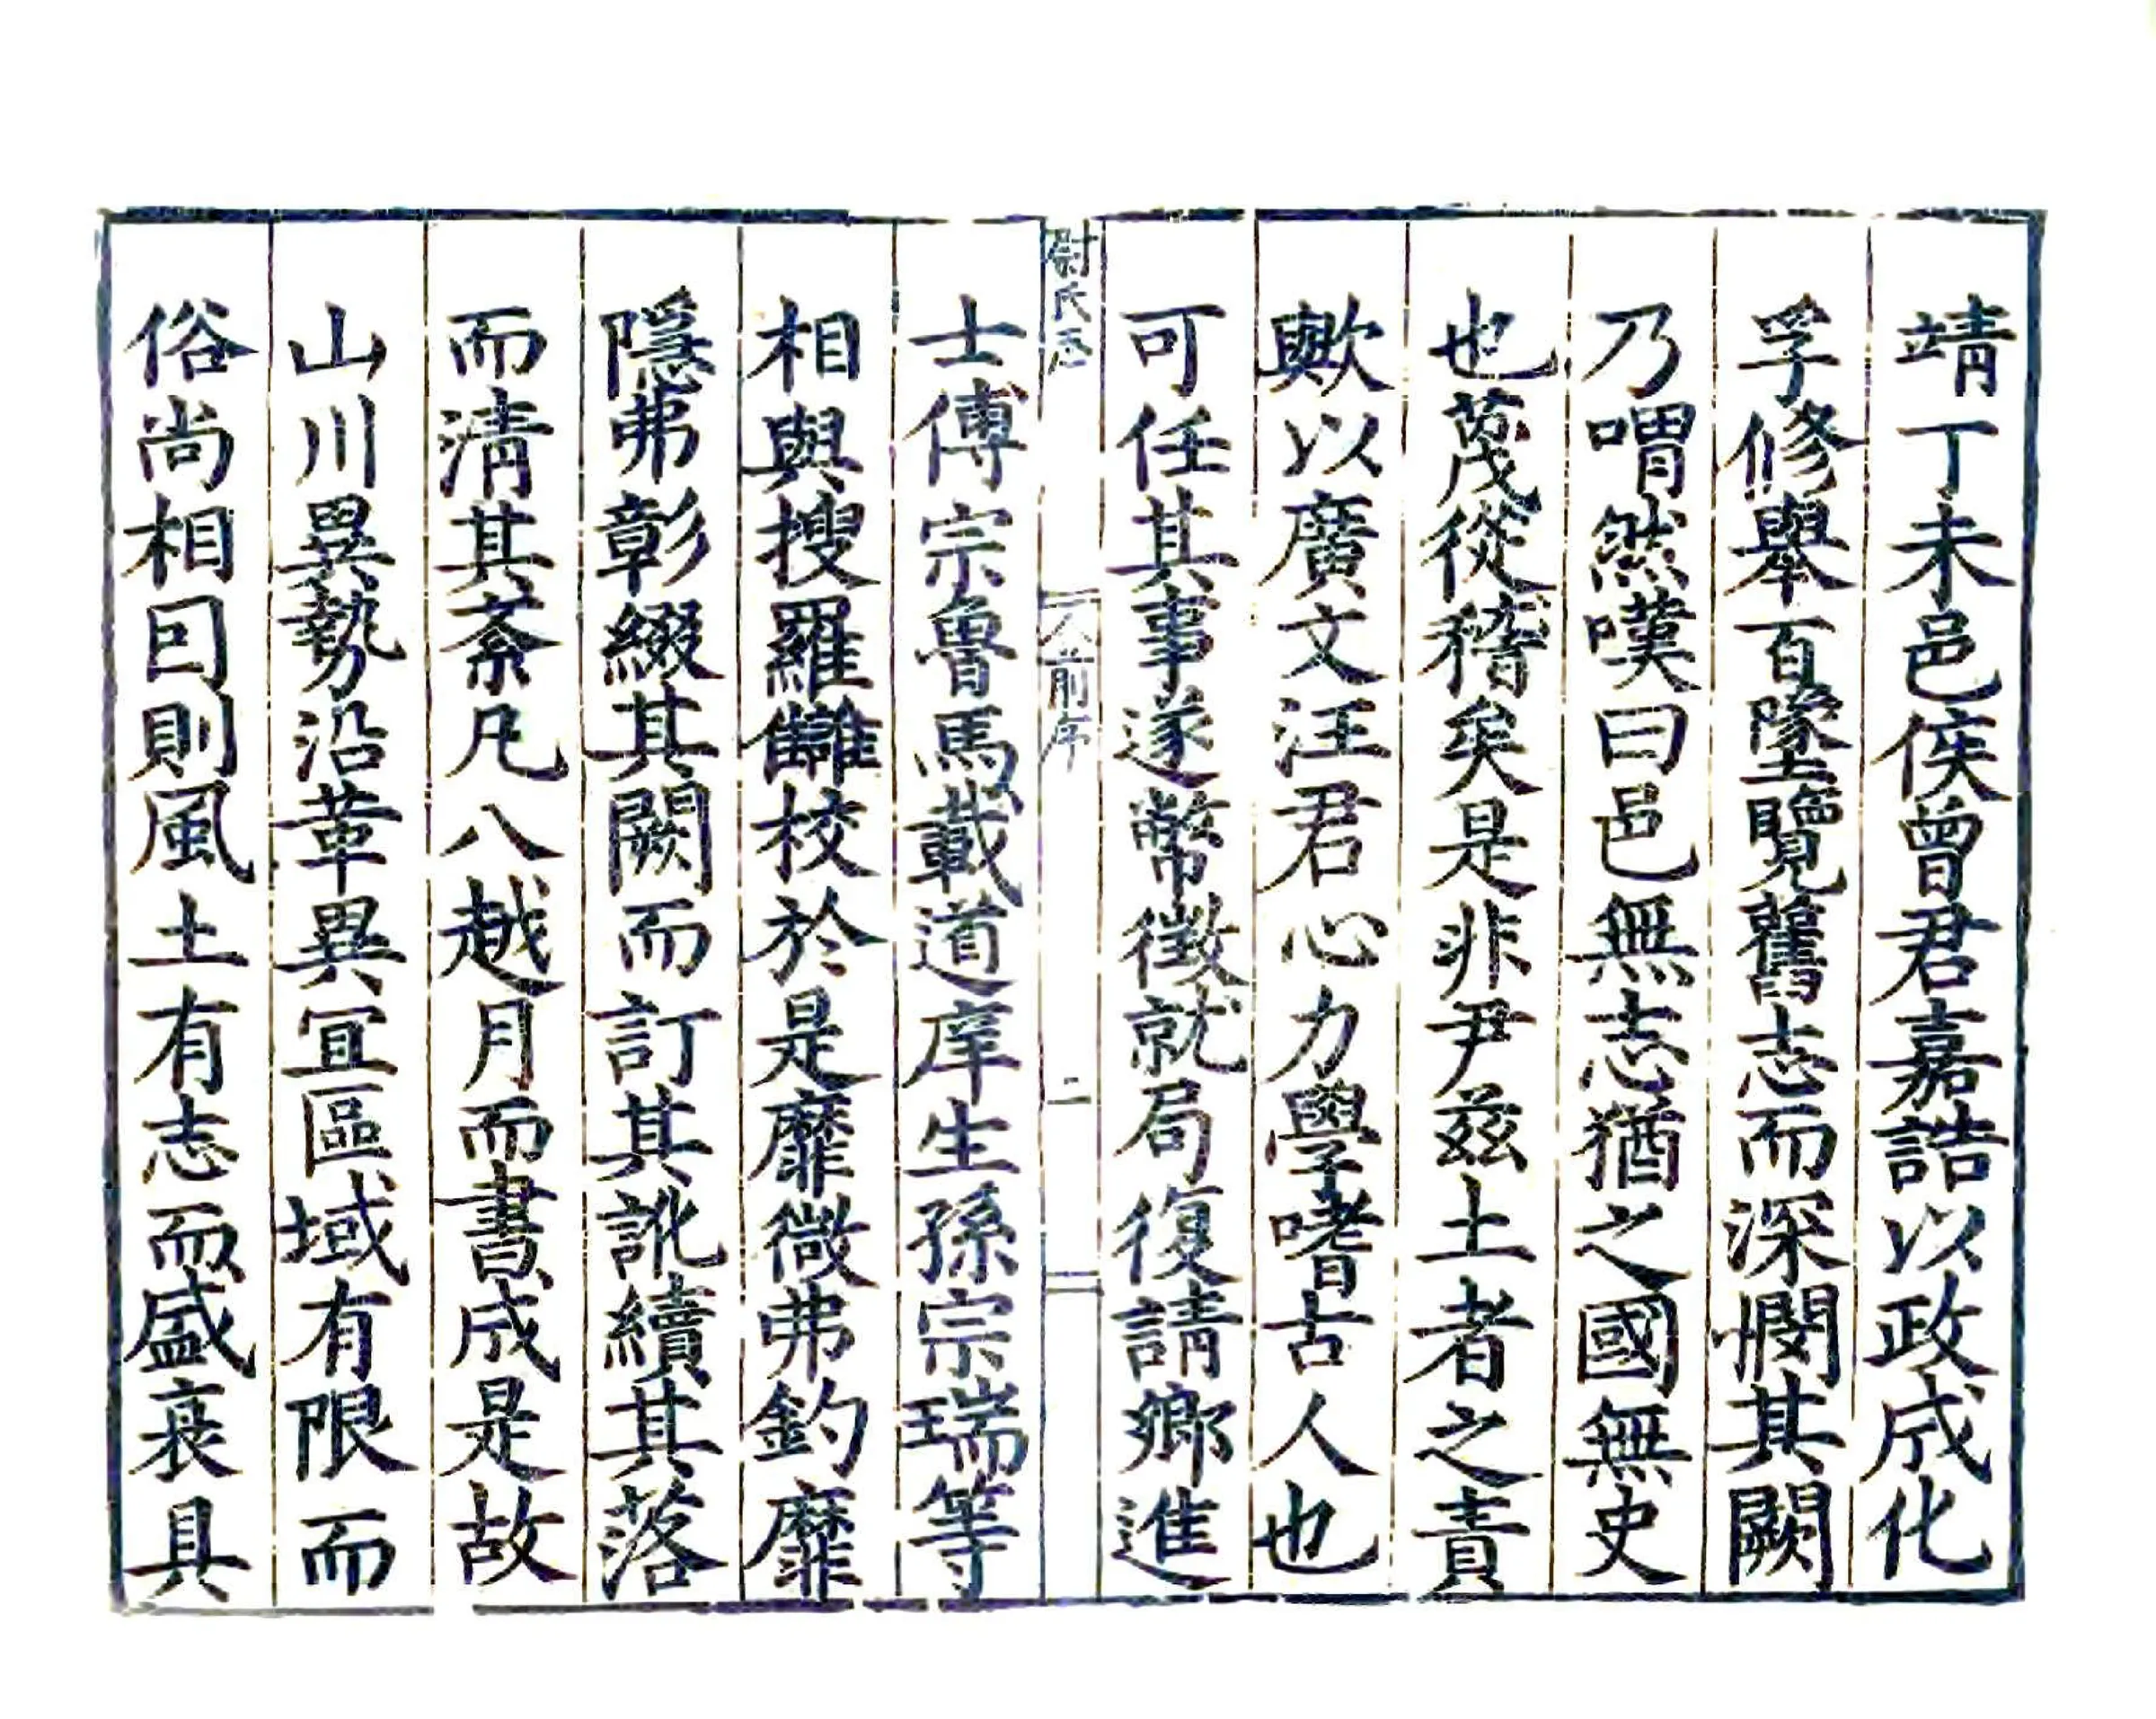 靖丁未邑侯曾君嘉誥以政成化
孚修舉百墜覽舊志而深憫其闕
乃喟然嘆曰邑無志猶之國無史
也蔑從稽矣是非尹茲土者之責
歟以廣文汪君心力學嗜古人也
可任其事遂幣徵就局復請鄉進
尉氏志
前序
二
士傅宗魯馬載道庠生孫宗瑞等
相與搜羅讎校於是靡微弗釣靡
隱弗彰綴其闕而訂其訛續其落
而清其紊凡八越月而書成是故
山川異勢沿革異宜區域有限而
俗尚相因則風土有志而盛衰具